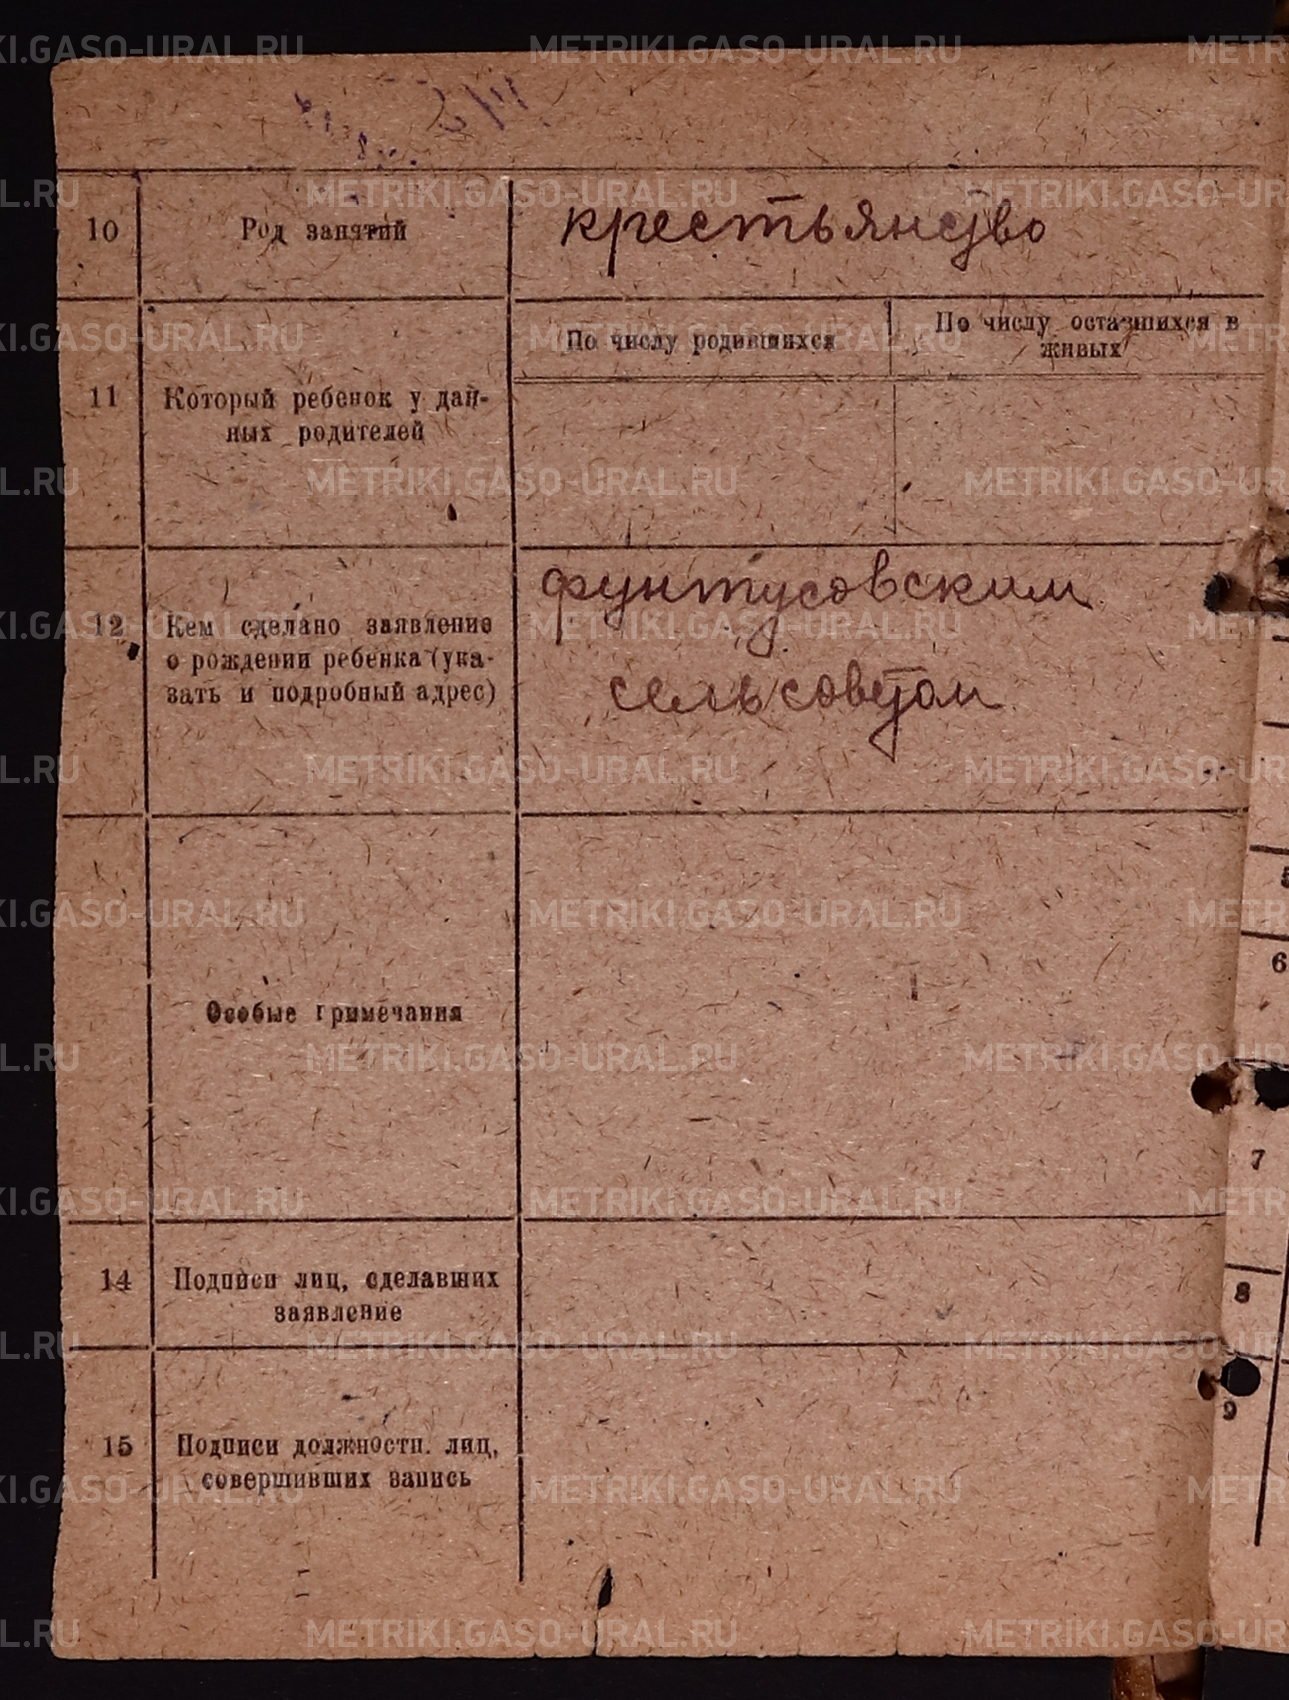 METRIKI.GASO-URAL.RU
10
Род занятий
крестьянство
11
Который ребенок у дан-
ных родителей
По числу родившихся
По числу оставшихся в
живых
12
Кем сделано заявление
о рождении ребенка (ука-
зать и подробный адрес)
фунтусовским
сельсоветом
Особые примечания
14
Подписи лиц, сделавших
заявление
15
Подписи должностн. лиц,
совершивших запись
6
7
8
9